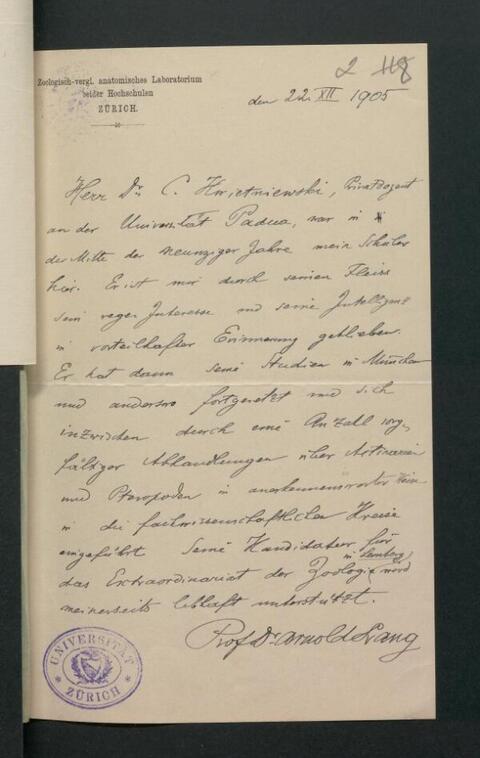 2 118
Zoologisch-vergl. anatomisches Laboratorium
beider Hochschulen
ZÜRICH.
den 22. XII 1905
Herr Dr. C. Kwietniewski, Privatdozent
an der Universität Padua, war in
der Mitte der neunziger Jahre mein Schüler
hier. Er ist mir durch seinen Fleiss
sein reges Interesse und seine Intelligenz
in vorteilhafter Erinnerung geblieben.
Er hat dann seine Studien in München
und anderswo fortgesetzt und sich
inzwischen durch eine Anzahl sorg-
fältiger Abhandlungen über Actinien
und Pteropoden in anerkennenswerter Weise
in die fachwissenschaftlichen Kreise
eingeführt. Seine Kandidatur für
das Extraordinariat der Zoologie in Lemberg wird
meinerseits lebhaft unterstützt.
Prof. Dr. Arnold Lang
UNIVERSITÄT
ZÜRICH